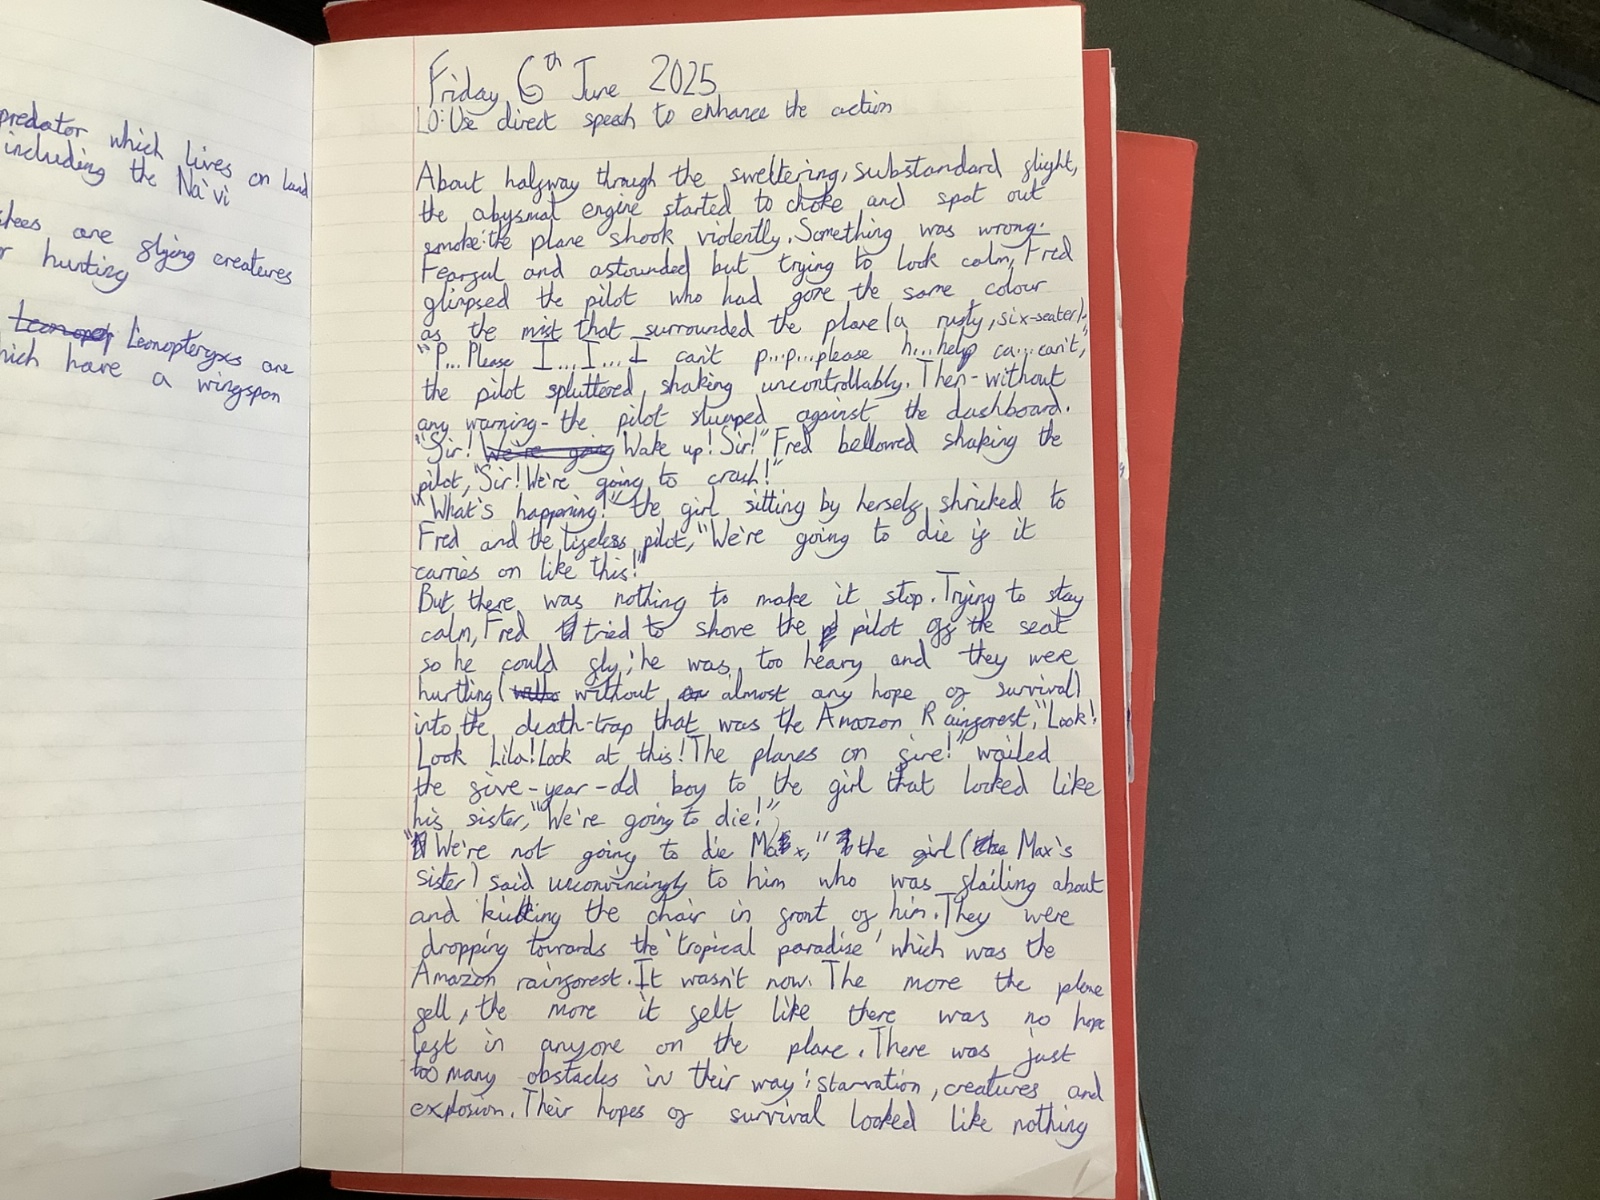 predator which lives on land
including the Na'vi
are flying creatures
hunting
Leonopteryxs are
have a wingspan
Friday 6th June 2025
LO: Use direct speech to enhance the action
About halfway through the sweltering, substandard flight,
the abysmal engine started to choke and spat out
smoke: the plane shook violently. Something was wrong.
Fearful and astounded but trying to look calm, Fred
glimpsed the pilot who had gone the same colour
as the mist that surrounded the plane (a rusty, six-seater).
"P... Please I... I... I can't p...p...please h...help ca...can't,"
the pilot spluttered, shaking uncontrollably. Then - without
any warning - the pilot slumped against the dashboard.
"Sir! We're going Wake up! Sir!" Fred bellowed shaking the
pilot, "Sir! We're going to crash!"
"What's happening!" the girl sitting by herself shricked to
Fred and the lifeless pilot, "We're going to die if it
carries on like this!"
But there was nothing to make it stop. Trying to stay
calm, Fred tried to shove the pilot off the seat
so he could fly; he was too heavy and they were
hurtling (without almost any hope of survival)
into the death-trap that was the Amazon Rainforest, "Look!
Look Lila! Look at this! The planes on fire!" wailed
the five-year-old boy to the girl that looked like
his sister, "We're going to die!"
"We're not going to die Max," the girl (Max's
sister) said unconvincingly to him who was flailing about
and kicking the chair in front of him. They were
dropping towards the 'tropical paradise' which was the
Amazon rainforest. It wasn't now. The more the plane
fell, the more it felt like there was no hope
left in anyone on the plane. There was just
too many obstacles in their way: starvation, creatures and
explosion. Their hopes of survival looked like nothing